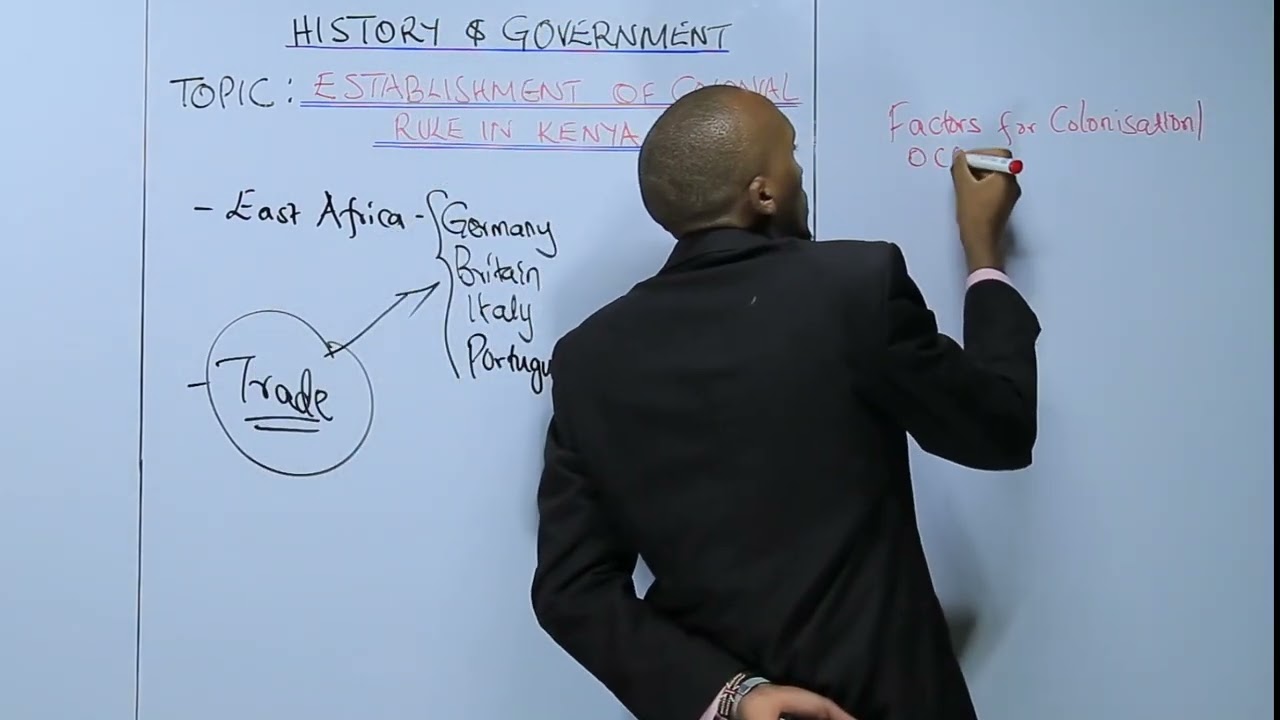 HISTORY & GOVERNMENT
TOPIC: ESTABLISHMENT OF COLONIAL
RULE IN KENYA
- East Africa - Germany
Britain
Italy
- Trade
Factors for Colonisation/